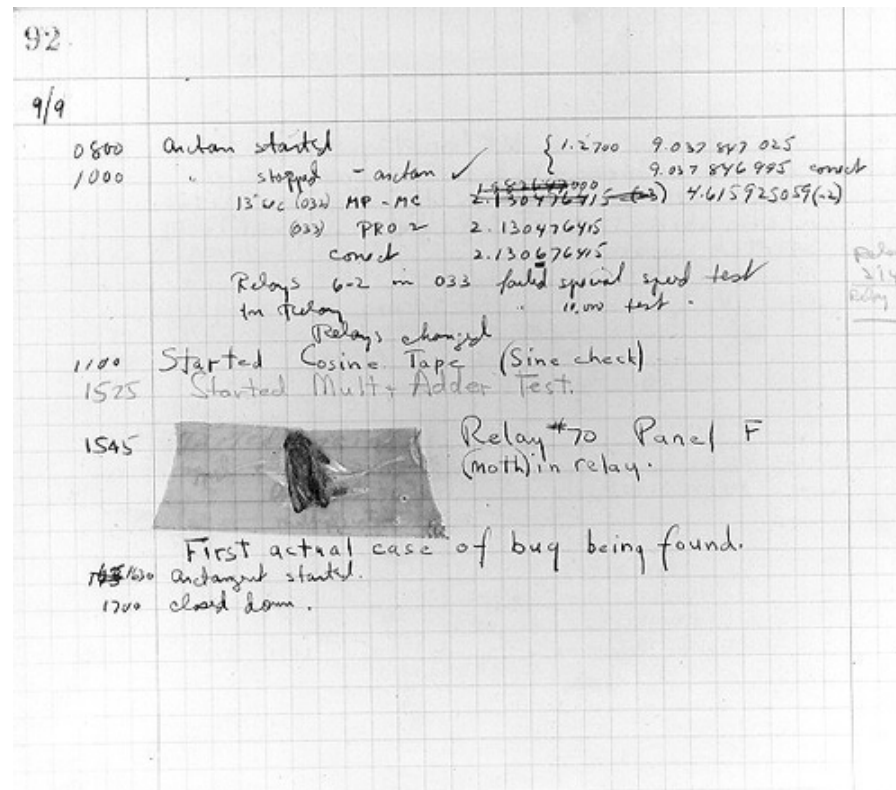 92
9/9
0800 arctan started { 1.2700 9.037 847 025
1000 " stopped - arctan ✓ 9.037 846 995 correct
13"uc (032) MP - MC 2.130476415 (-3) 4.615925059(-2)
(033) PRO 2 2.130476415
correct 2.130676415
Relays 6-2 in 033 failed special speed test
In Relay " 10,000 test .
Relays changed
1100 Started Cosine Tape (Sine check)
1525 Started Mult+ Adder Test.
1545 Relay #70 Panel F
(moth) in relay.
First actual case of bug being found.
1630 arctangent started.
1700 closed down.
Relay
Relay